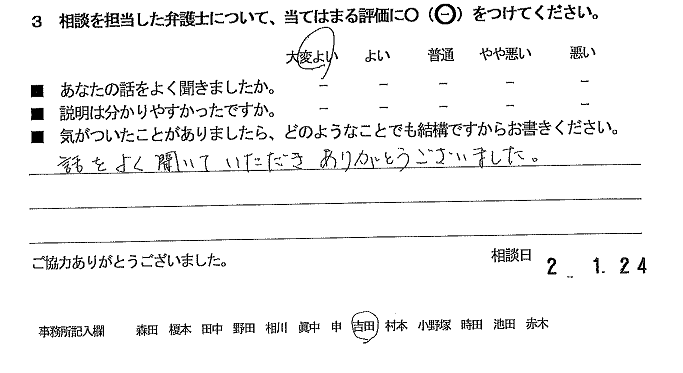 3 相談を担当した弁護士について、当てはまる評価に○（㊀）をつけてください。
大変よい よい 普通 やや悪い 悪い
■ あなたの話をよく聞きましたか。 － － － － －
■ 説明は分かりやすかったですか。 － － － － －
■ 気がついたことがありましたら、どのようなことでも結構ですからお書きください。
話をよく聞いていただきありがとうございました。
ご協力ありがとうございました。 相談日 2 . 1. 24
事務所記入欄 森田 榎本 田中 野田 相川 眞中 申 吉田 村本 小野塚 時田 池田 赤木